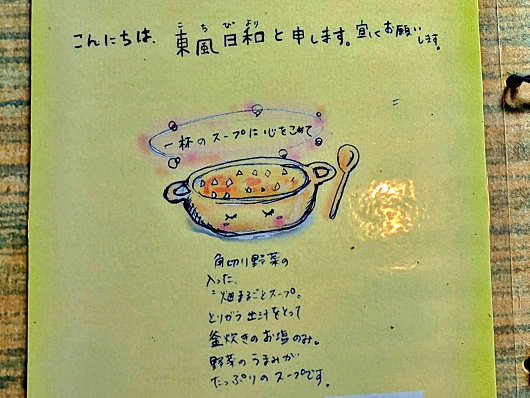 こんにちは、東風日和と申します。宜しくお願いします。
こちびより
一杯のスープに心をこめて
角切り野菜の
入った、
"畑まるごとスープ。
とりがら出汁をとって
釜炊きのお塩のみ。
野菜のうまみが
たっぷりのスープです。